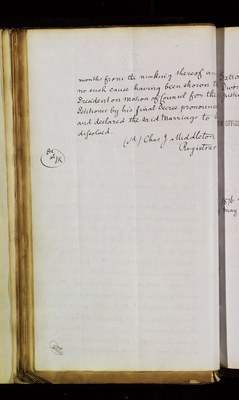 months from the making thereof an
no such cause having been shown t
President on Motion of Counsel for the
Petitioner by his final Decree pronounce
and declared the said Marriage to b
dissolved.
(sd) Chas J Middleton
Registrar
Extra
Divor
OFFICE
1876
may